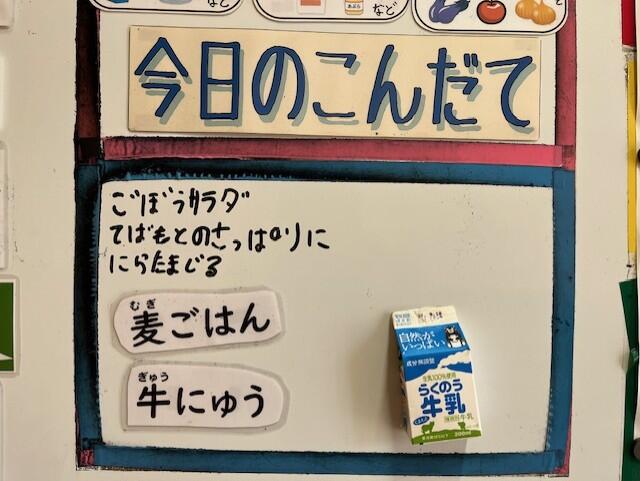 など
など
今日のこんだて
ごぼうサラダ
てばもとのさっぱりに
にらたまじる
むぎ
麦ごはん
ぎゅう
牛にゅう
自然が
いっぱい
成分無調整
生乳100%使用
らくのう
牛乳
200ml